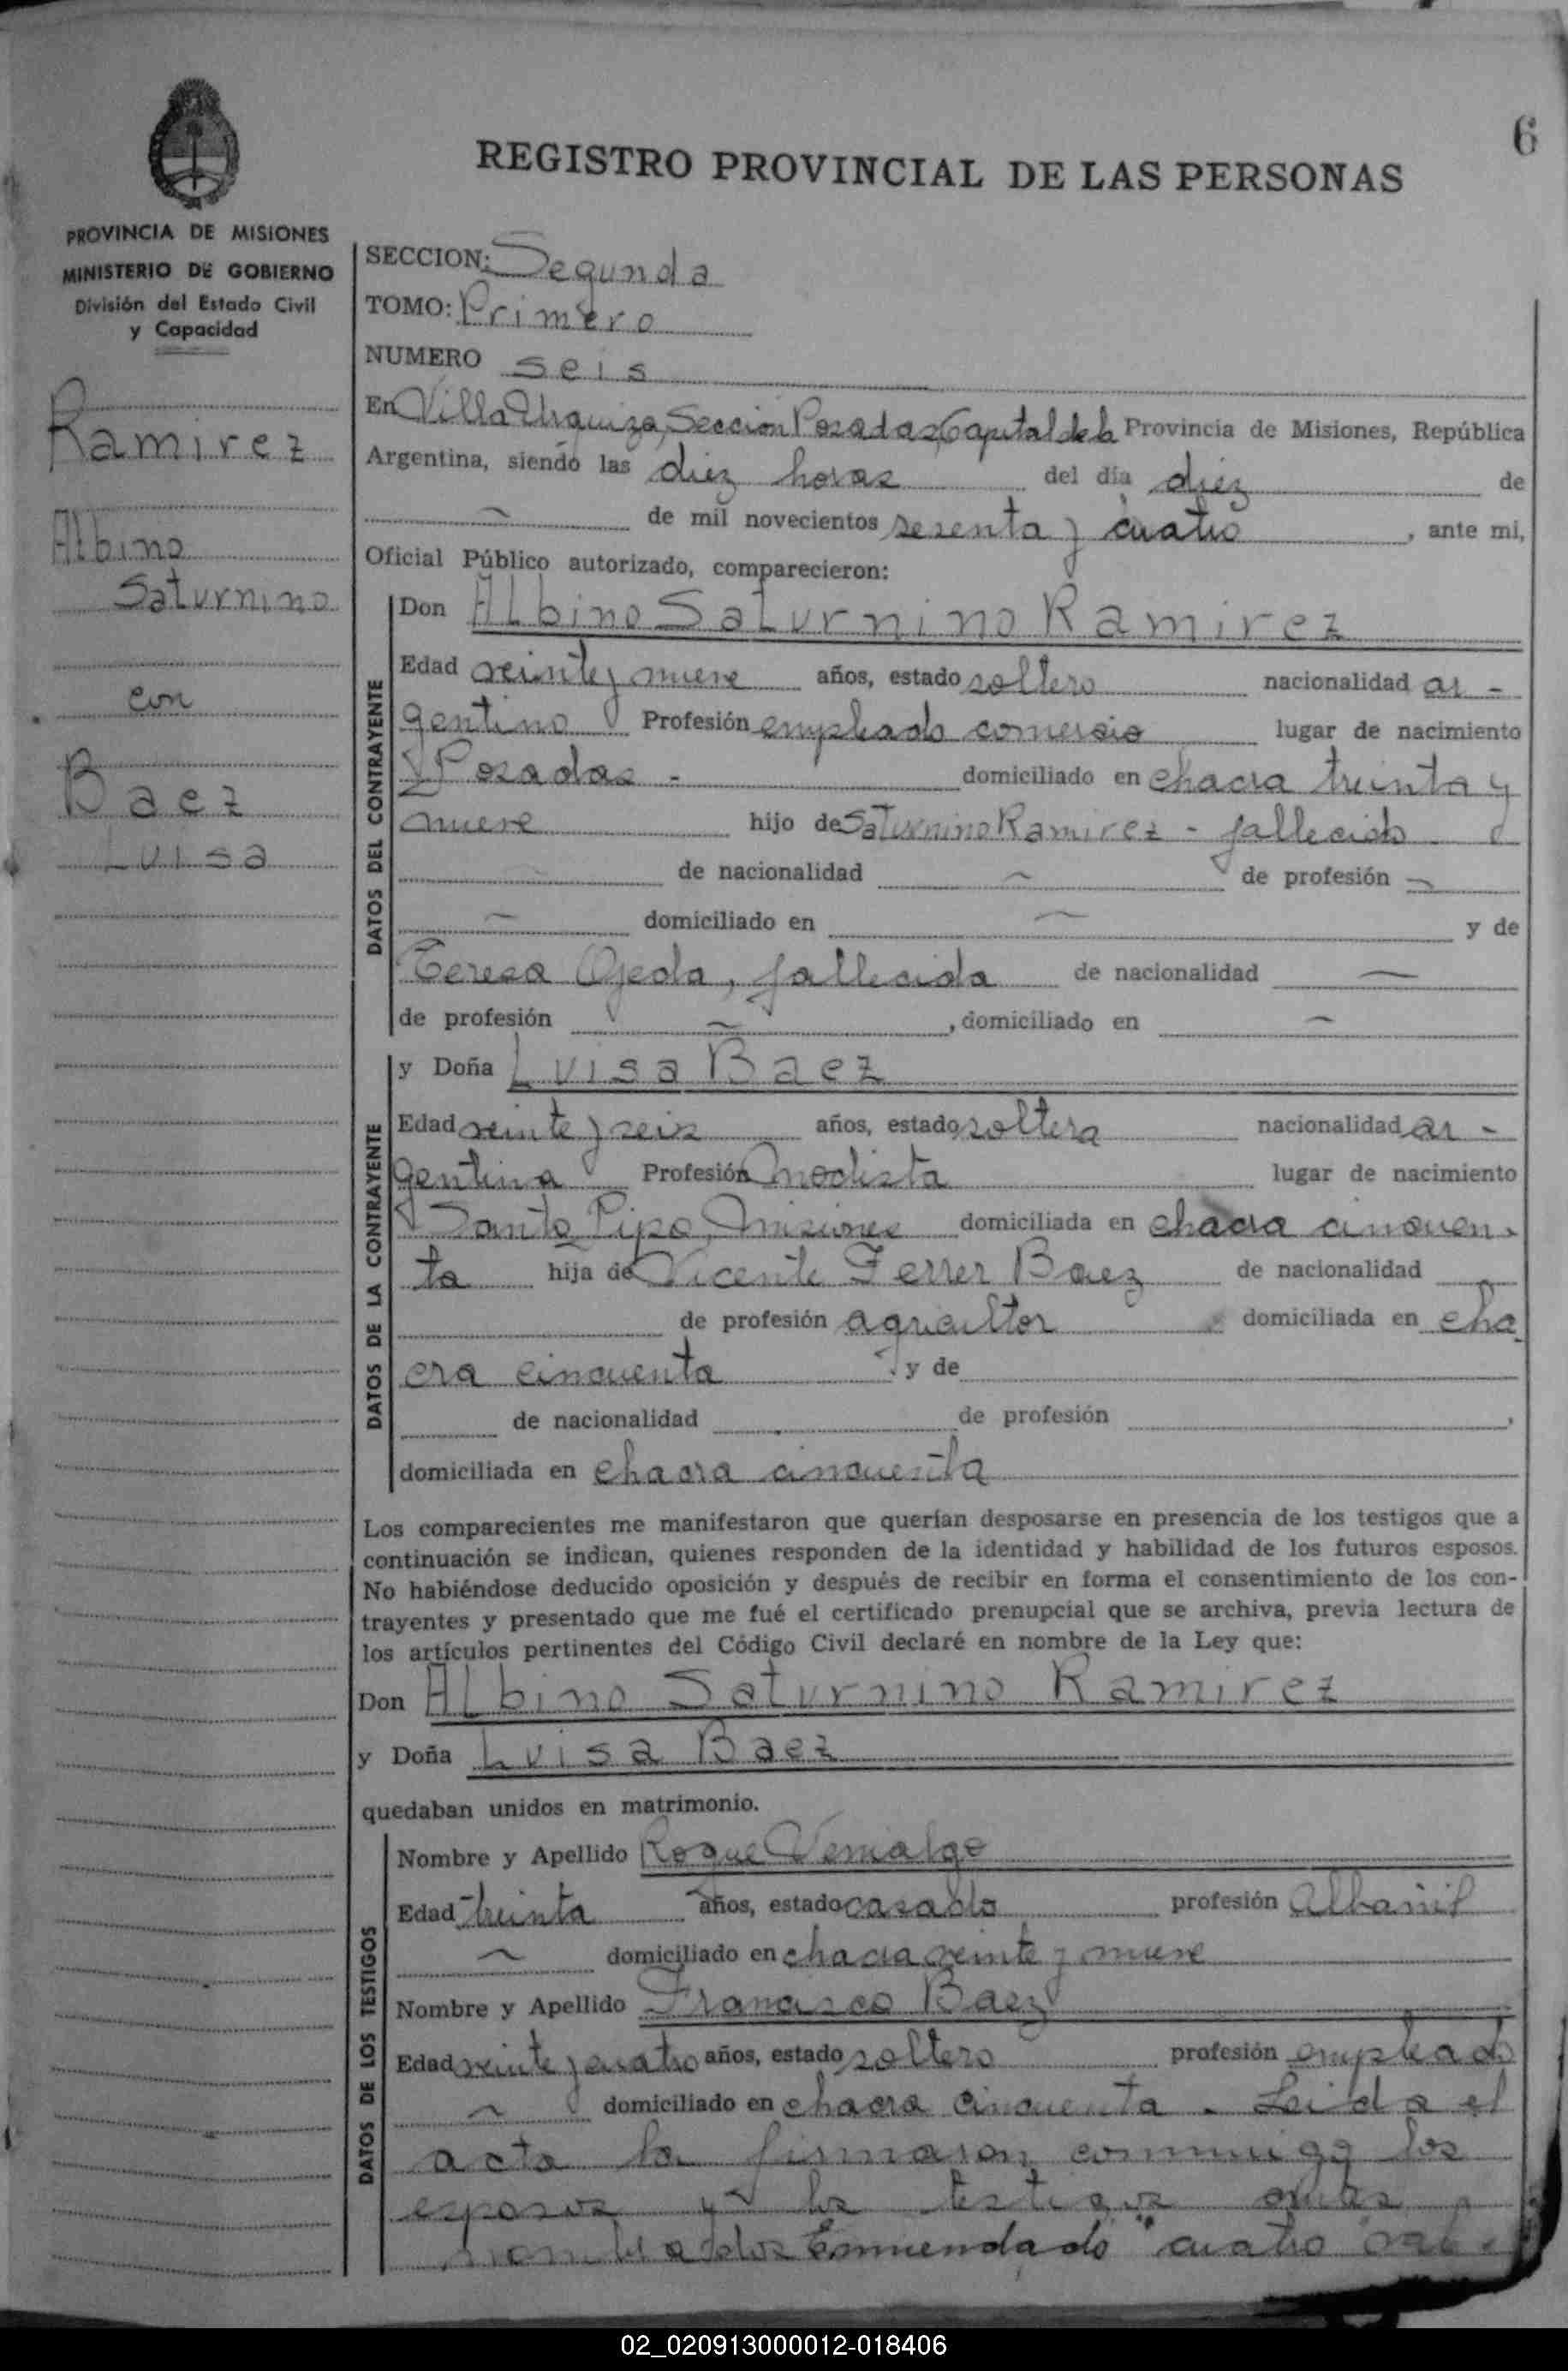 6
REGISTRO PROVINCIAL DE LAS PERSONAS
PROVINCIA DE MISIONES
MINISTERIO DE GOBIERNO
División del Estado Civil
y Capacidad
Ramirez
Albino
Saturnino
con
Baez
Luisa
SECCION: Segunda
TOMO: Primero
NUMERO seis
En Villa Urquiza, Sección Posadas, Capital de la Provincia de Misiones, República
Argentina, siendo las diez horas del día diez de
de mil novecientos sesenta y cuatro, ante mi,
Oficial Público autorizado, comparecieron:
DATOS DEL CONTRAYENTE
Don Albino Saturnino Ramirez
Edad veinte y nueve años, estado soltero nacionalidad ar-
gentino Profesión empleado comercio lugar de nacimiento
Posadas - domiciliado en chacra treinta y
nueve hijo de Saturnino Ramirez - fallecido
de nacionalidad de profesión
domiciliado en y de
Teresa Ojeda, fallecida de nacionalidad
de profesión , domiciliado en
DATOS DE LA CONTRAYENTE
y Doña Luisa Baez
Edad veinte y seis años, estado soltera nacionalidad ar-
gentina Profesión modista lugar de nacimiento
Santo Pipo, Misiones domiciliada en chacra cincuen-
ta hija de Vicente Ferrer Baez de nacionalidad
de profesión agricultor domiciliada en cha
cra cincuenta y de
de nacionalidad de profesión ,
domiciliada en chacra cincuenta
Los comparecientes me manifestaron que querían desposarse en presencia de los testigos que a
continuación se indican, quienes responden de la identidad y habilidad de los futuros esposos.
No habiéndose deducido oposición y después de recibir en forma el consentimiento de los con-
trayentes y presentado que me fué el certificado prenupcial que se archiva, previa lectura de
los artículos pertinentes del Código Civil declaré en nombre de la Ley que:
Don Albino Saturnino Ramirez
y Doña Luisa Baez
quedaban unidos en matrimonio.
DATOS DE LOS TESTIGOS
Nombre y Apellido Roque Venialgo
Edad treinta años, estado casado profesión albañil
domiciliado en chacra veinte y nueve
Nombre y Apellido Francisco Baez
Edad veinte y cuatro años, estado soltero profesión empleado
domiciliado en chacra cincuenta. Leida el
acta la firmaron conmigo los
esposos y los testigos antes
nombrados Enmendado "cuatro
02_020913000012-018406